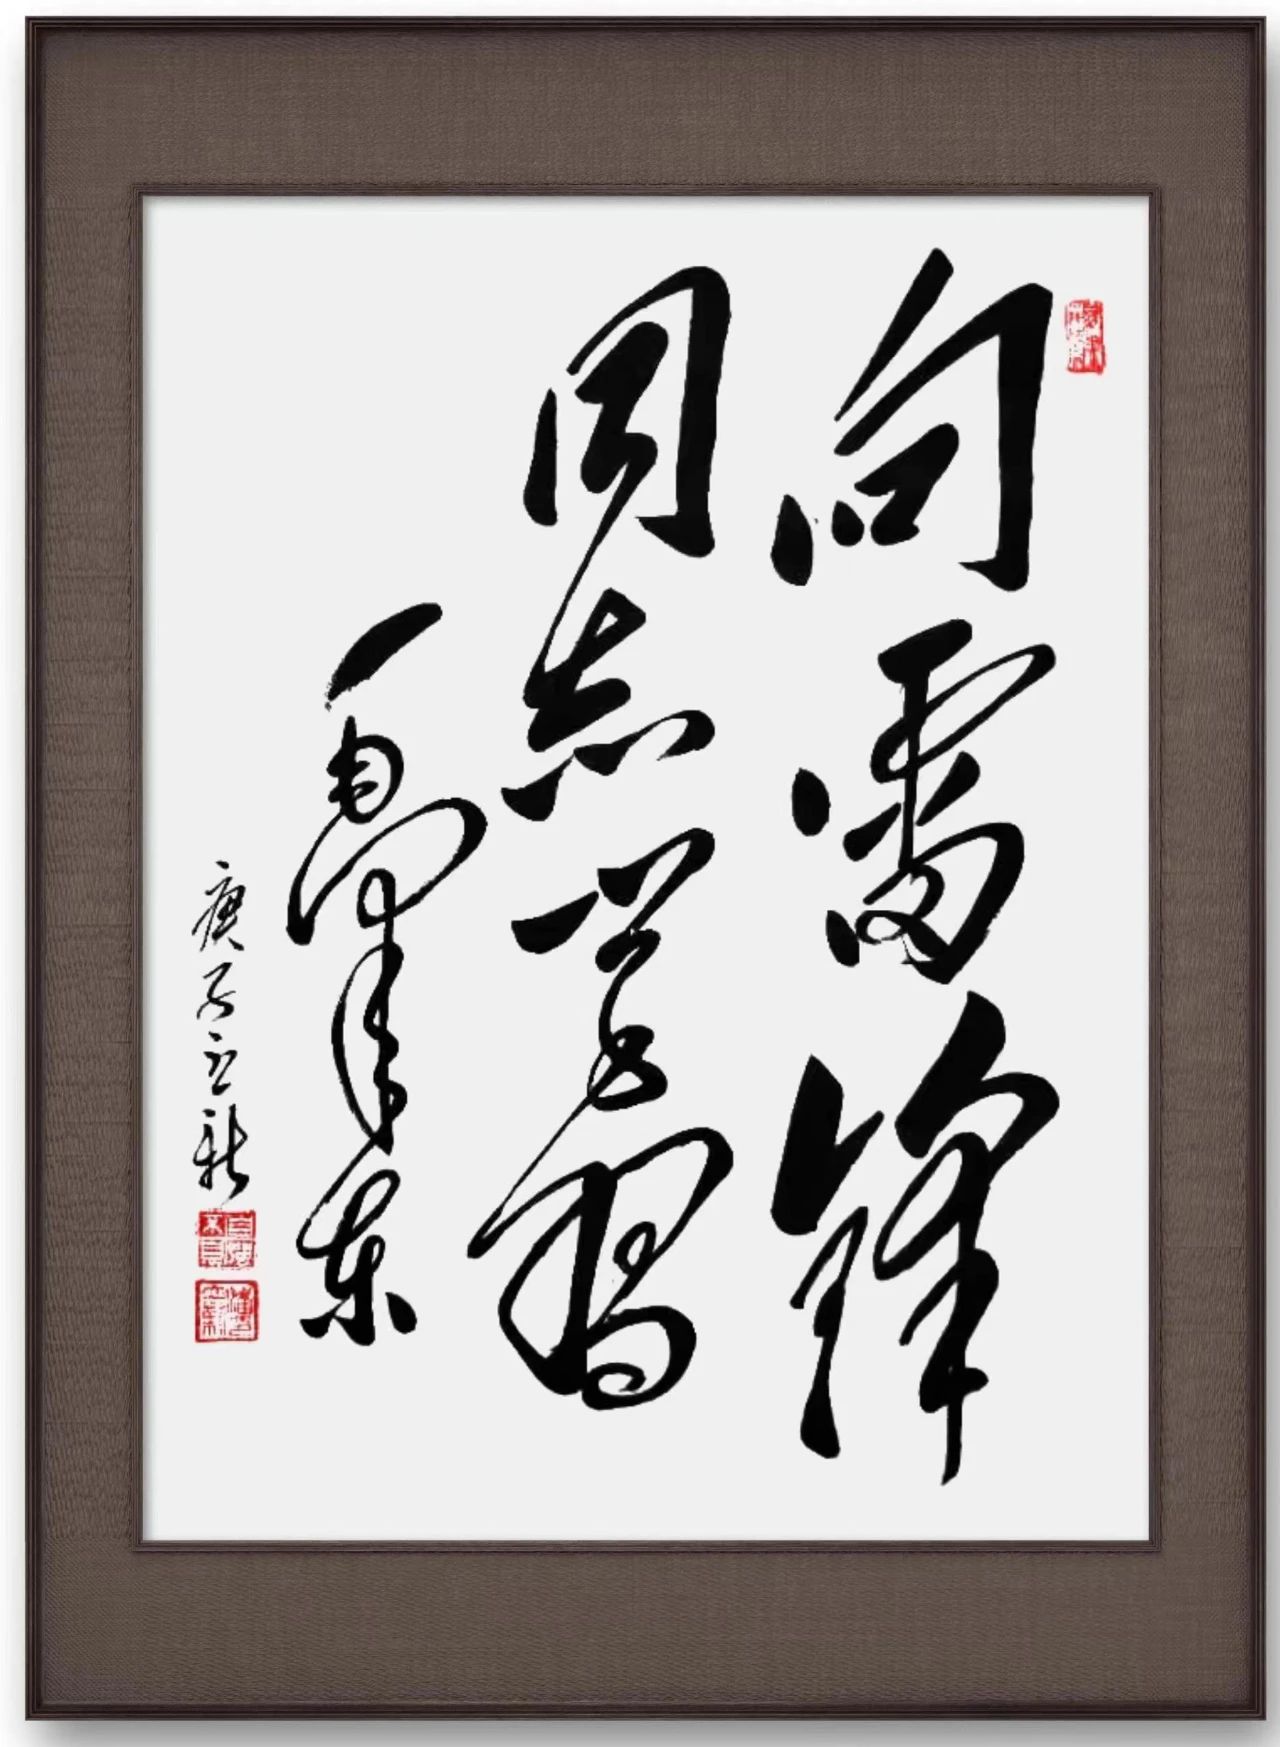 向雷锋
同志学习
毛泽东
庚子立新